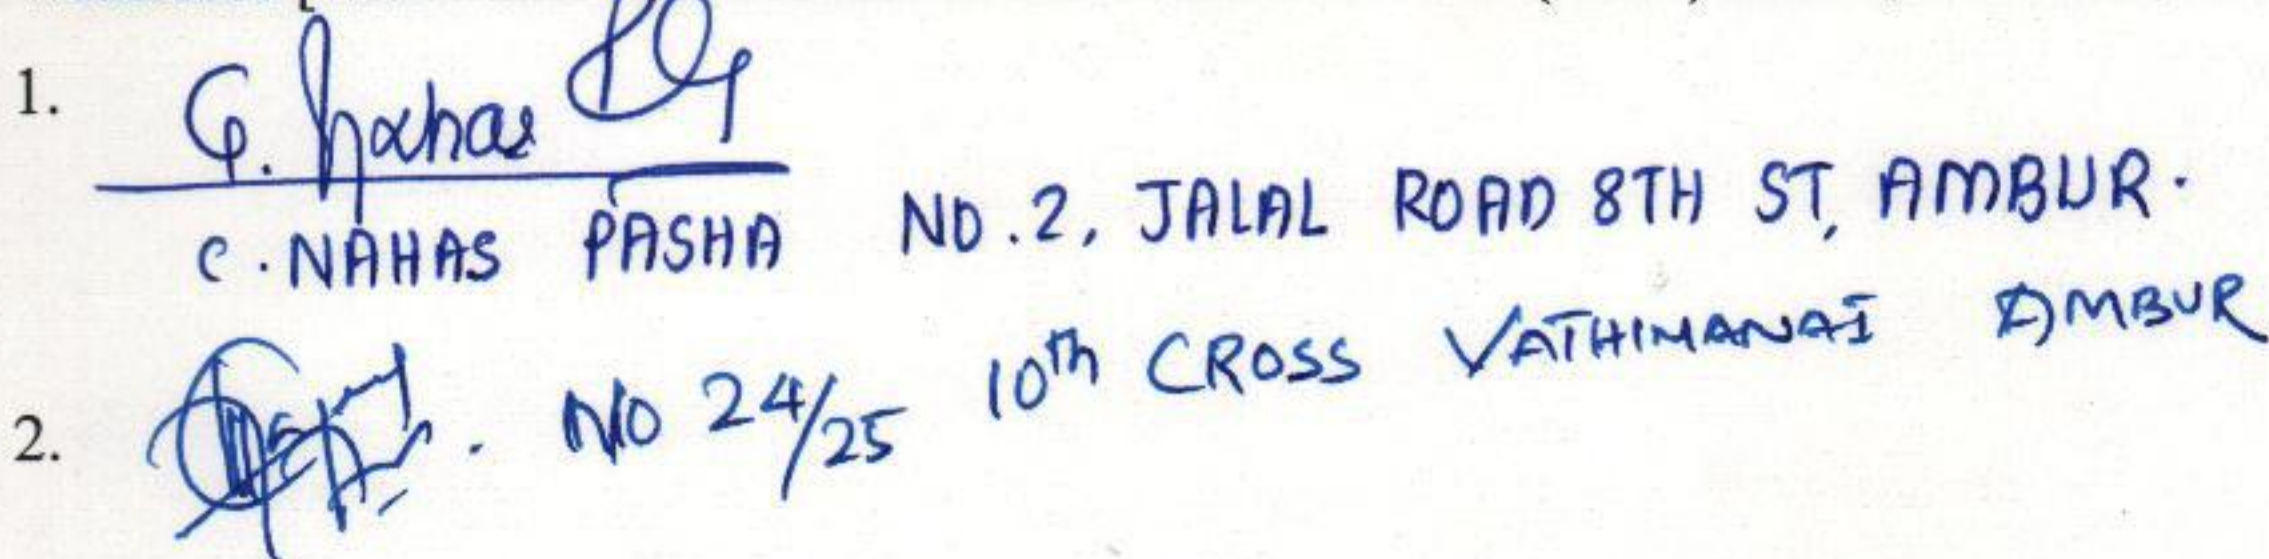 1. C. Nahas
C. NAHAS PASHA NO.2, JALAL ROAD 8TH ST, AMBUR.
2. NO 24/25 10th CROSS VATHIMANAI AMBUR